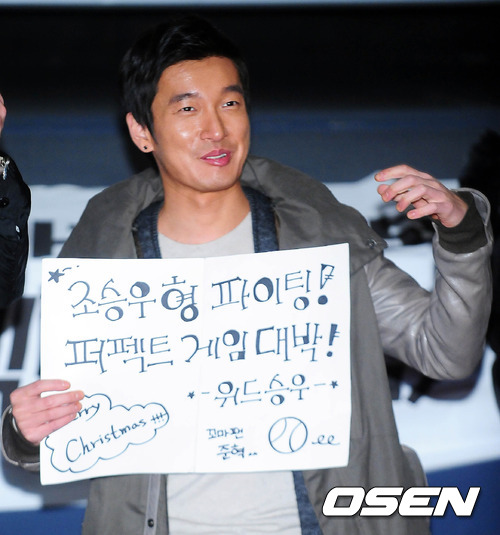 조승우형 파이팅!
퍼펙트 게임 대박!
-위드승우-
Merry
Christmas
꼬마팬
준혁..
ee
OSEN